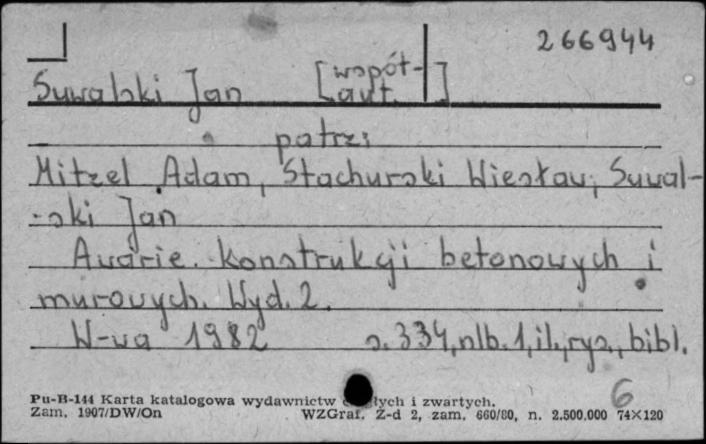 266944
Suwalski Jan [współ-
aut.]
patrz:
Mitzel Adam, Stachurski Wiesław, Suwal-
-ski Jan
Awarie konstrukcji betonowych i
murowych. Wyd. 2.
W-wa 1982 s. 334, nlb. 1, il., rys., bibl.
6
Pu-B-144 Karta katalogowa wydawnictw ciągłych i zwartych.
Zam. 1907/DW/On WZGraf. Z-d 2, zam. 660/80, n. 2.500.000 74×120